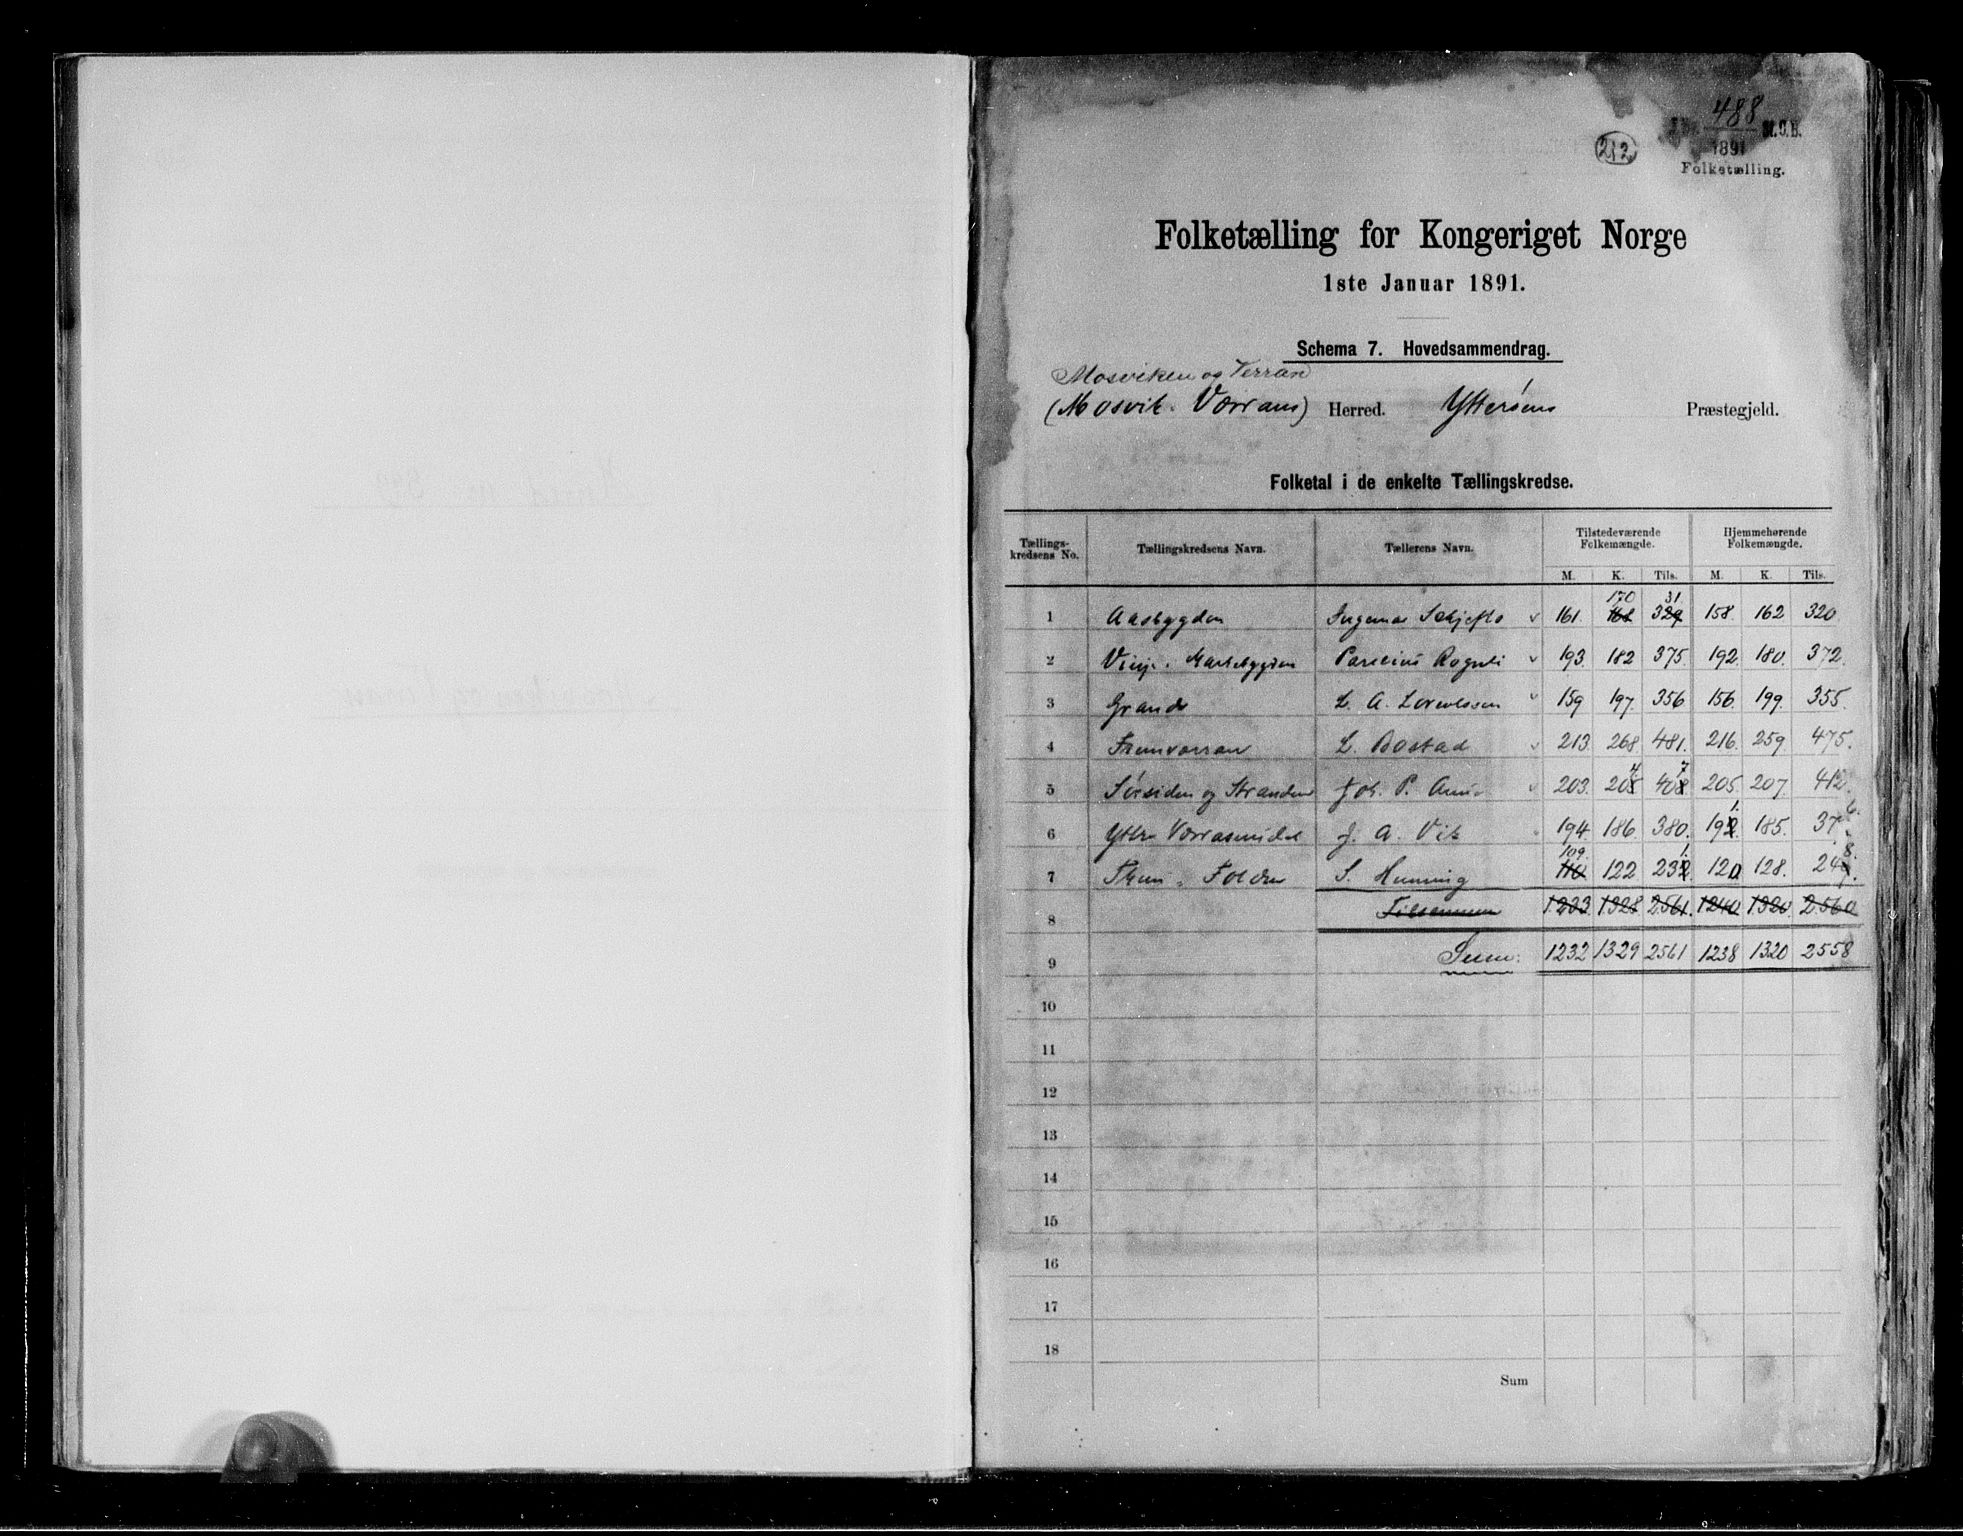 488
212
1891
Folketælling.
Folketælling for Kongeriget Norge
1ste Januar 1891.
Schema 7. Hovedsammendrag.
Mosviken og Verran
(Mosvik. Værrans) Herred. Ytterøens Præstegjeld.
Folketal i de enkelte Tællingskredse.
Tællings-kredsens No. Tællingskredsens Navn. Tællerens Navn. Tilstedeværende Folkemængde. Hjemmehørende Folkemængde.
M. K. Tils. M. K. Tils.
170 31.
1 Aasbygden Ingemar 161. 168 329 158. 162 320
2 Vinje. Markabygden 193. 182 375. 192. 180. 372.
3 Grande L. A. Lorentssen 159 197. 356 156. 199. 355.
4 Fremværran L. Bostad 213. 268. 481. 216. 259. 475.
4 7
5 Sørsiden og Stranden Joh. P. 203. 205 408 205. 207. 412.
1. 6.
6 Yttre J. A. Vik 194. 186. 380. 192. 185. 37
109. 1. 8.
7 Folden S. Henning 110 122 232 120 128. 249.
8 Tilsammen 1233 1328 2561. 1240 1320 2560
9 Sum: 1232 1329 2561 1238 1320 2558
10
11
12
13
14
15
16
17
18
Sum